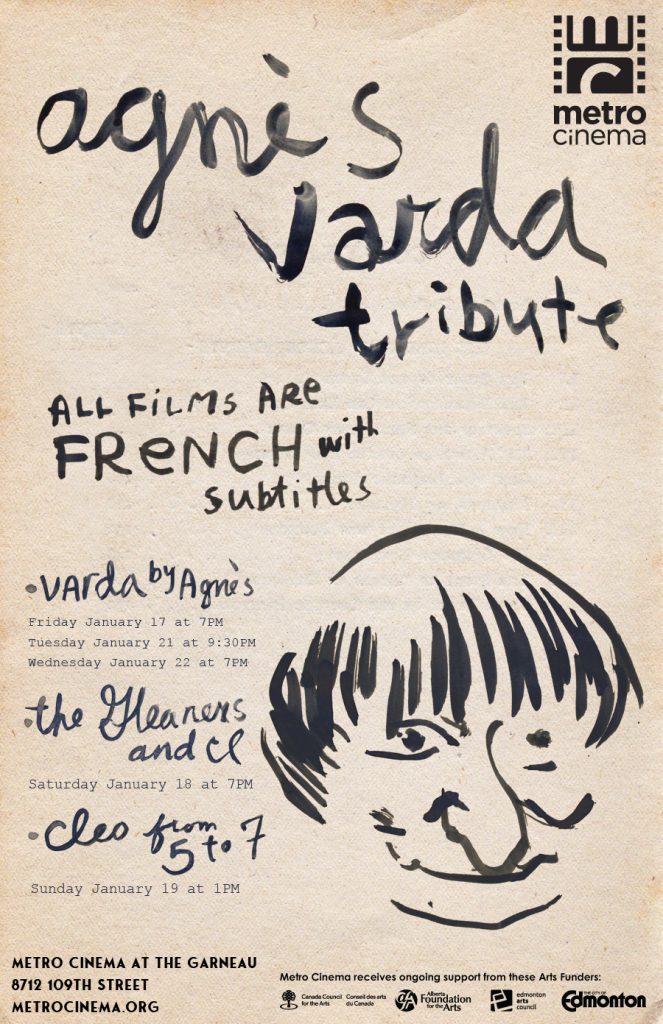 agnès
varda
tribute
metro
cinema
ALL FILMS ARE
FRENCH with
subtitles
•VARDA by Agnès
Friday January 17 at 7PM
Tuesday January 21 at 9:30PM
Wednesday January 22 at 7PM
•the Gleaners
and I
Saturday January 18 at 7PM
•Cleo from
5 to 7
Sunday January 19 at 1PM
METRO CINEMA AT THE GARNEAU
8712 109TH STREET
METROCINEMA.ORG
Metro Cinema receives ongoing support from these Arts Funders:
Canada Council for the Arts
Conseil des arts du Canada
Alberta Foundation for the Arts
edmonton arts council
THE CITY OF
Edmonton